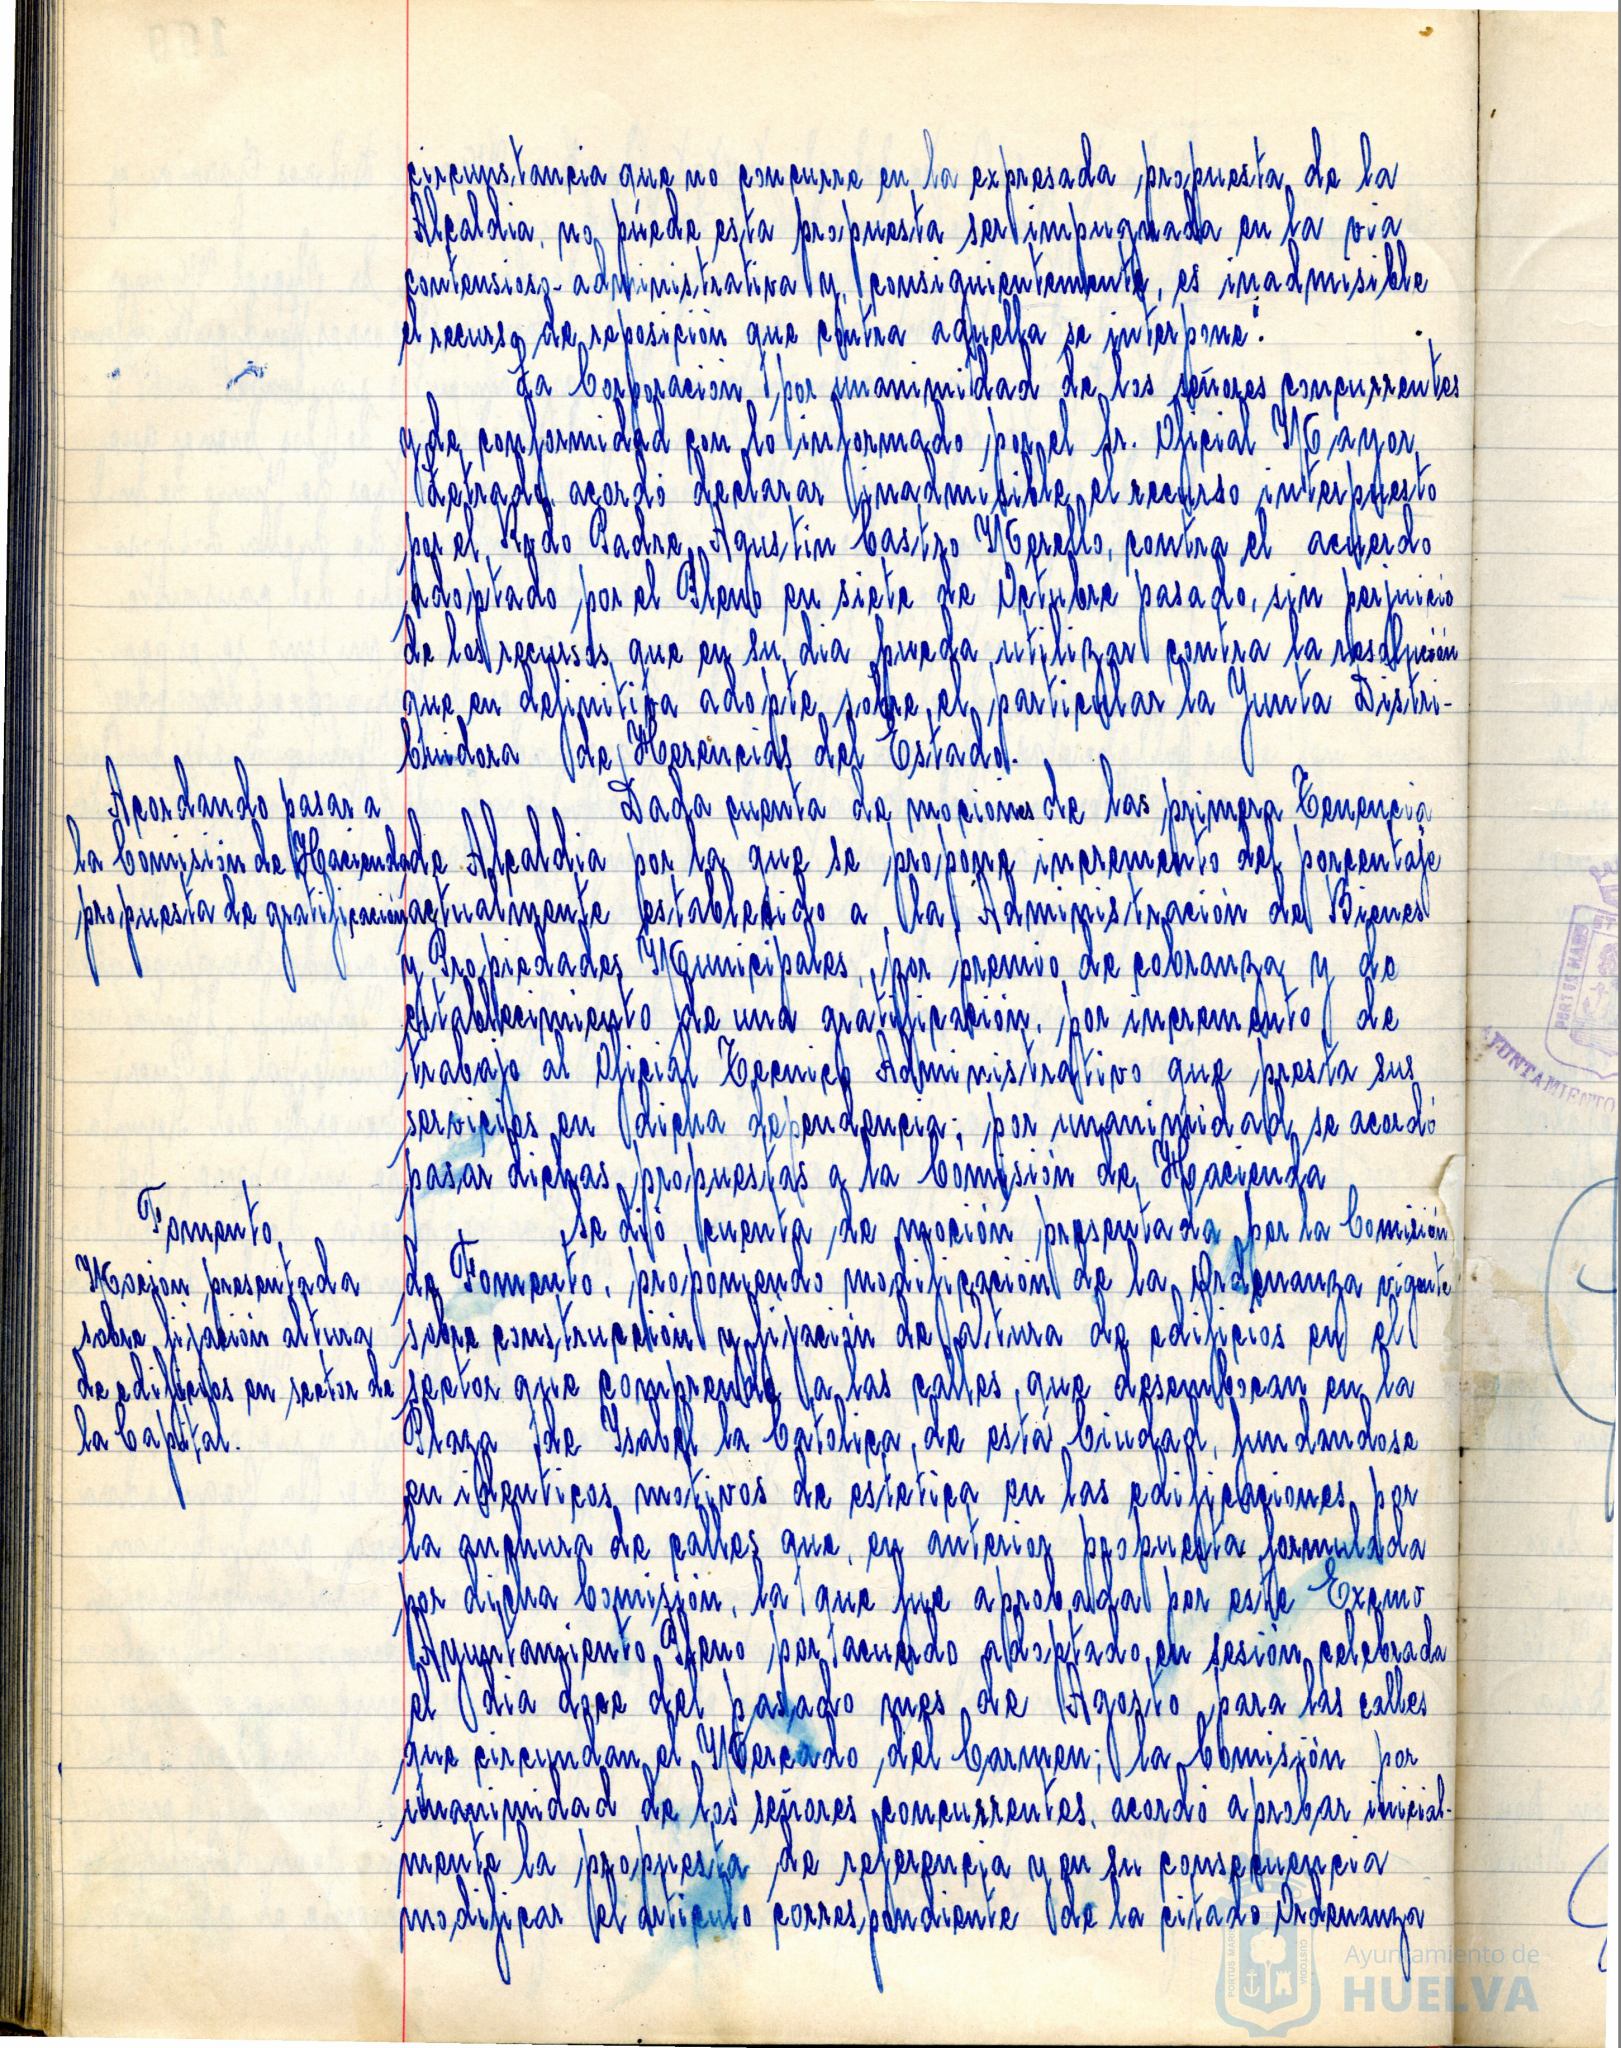 circunstancia que no concurre en la expresada propuesta de la
Alcaldia, no puede esta propuesta ser impugnada en la via
contensioso-administrativa y, consiguientemente, es inadmisible
el recurso de reposición que contra aquella se interpone".
La Corporación, por unanimidad de los señores concurrentes
y de conformidad con lo informado por el Sr. Oficial Mayor,
Letrado, acordó declarar inadmisible el recurso interpuesto
por el Rvdo Padre Agustin Castro Merello, contra el acuerdo
adoptado por el Pleno en siete de Octubre pasado, sin perjuicio
de los recursos que en su dia pueda utilizar contra la resolución
que en definitiva adopte sobre el particular la Junta Distri-
buidora de Herencias del Estado.
Acordando pasar a
la Comisión de Hacienda
propuesta de gratificación
Dada cuenta de mociones de las primera Tenencia
de Alcaldia por la que se propone incremento del porcentaje
actualmente establecido a la Administración de Bienes
y Propiedades Municipales, por premio de cobranza y de
establecimiento de una gratificación, por incremento de
trabajo al Oficial Tecnico Administrativo que presta sus
servicios en dicha dependencia; por unanimidad se acordó
pasar dichas propuestas a la Comisión de Hacienda
Fomento,
Mocion presentada
sobre fijación altura
de edificios en sector de
la Capital.
Se dió cuenta de moción presentada por la Comisión
de Fomento, proponiendo modificación de la Ordenanza vigente
sobre construcción y fijación de altura de edificios en el
sector que comprende a las calles que desembocan en la
Plaza de Isabel la Catolica, de esta Ciudad, fundandose
en identicos motivos de estetica en las edificaciones por
la anchura de calles que, en anterior propuesta formulada
por dicha Comisión, la que fue aprobada por este Excmo
Ayuntamiento Pleno por acuerdo adoptado en sesión celebrada
el dia doce del pasado mes de Agosto para las calles
que circundan el Mercado del Carmen; la Comisión por
unanimidad de los señores concurrentes, acordó aprobar inicial-
mente la propuesta de referencia y en su consecuencia
modificar el articulo correspondiente de la citado Ordenanza
PORTUS MARIS
AYUNTAMIENTO
PORTUS MARIS
CUSTODIA
Ayuntamiento de
HUELVA